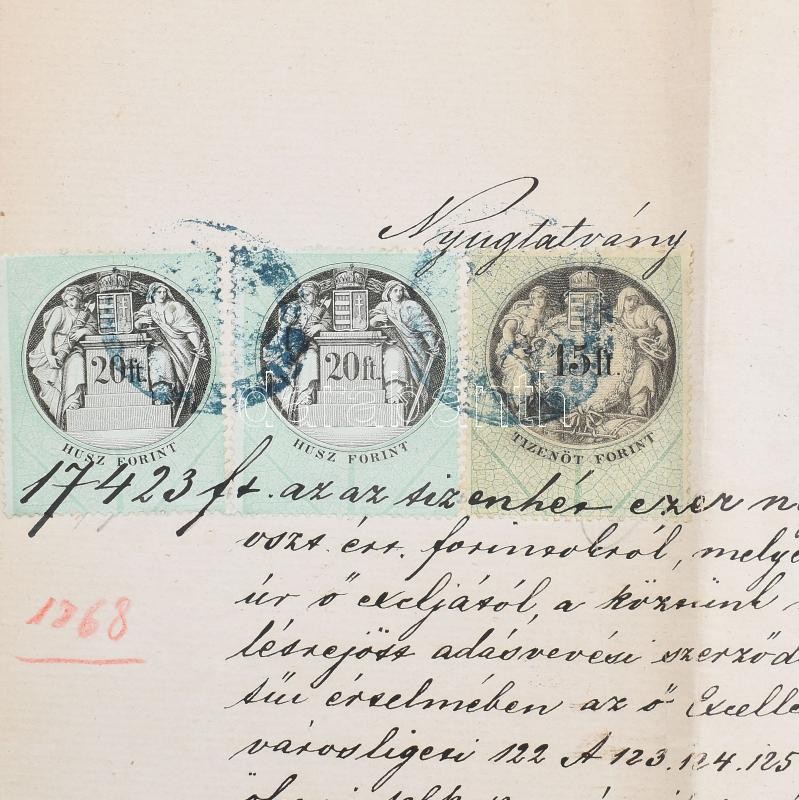 Nyugtatvány
20 ft. 20 ft. 15 ft.
HUSZ FORINT HUSZ FORINT TIZENÖT FORINT
darabanth
17423 ft. az az tizenhét ezer
oszt. ért. forintokról, mely
úr ő exceljától, a köztünk
létrejött adásvevési szerződ
tűi értelmében az ő Excelle
városligeti 122 A 123.124.125
1368